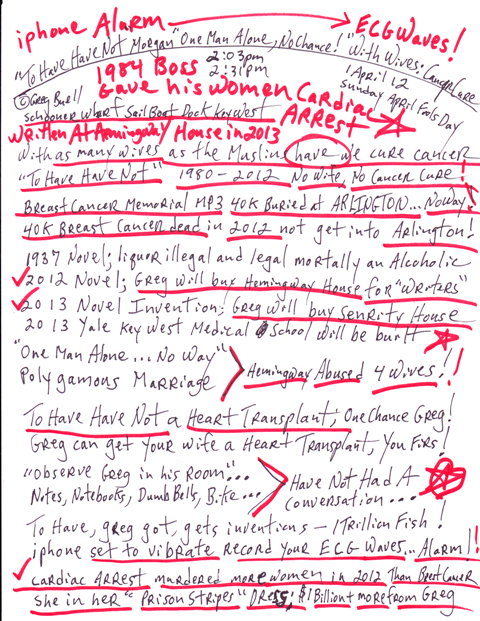 iphone Alarm → ECG Waves!
"To Have Have Not Morgan "One Man Alone, No Chance!" With Wives; Cancer Cure
2:03pm
1984 Boss 2:31pm 1 April 12
Gave his women Cardiac Sunday April Fools Day
© Greg Buell ARREST
Schooner Wharf Sail Boat Dock Key West
Written At Hemingway House in 2013
With as many wives as the Muslin have we cure cancer
"To Have Have Not" 1980-2012 No Wife, No Cancer Cure!
Breast Cancer Memorial MP3 40K Buried at ARLINGTON... No Way!
40K Breast Cancer dead in 2012 not get into Arlington!
1937 Novel; liquor illegal and legal mortally an Alcoholic
2012 Novel; Greg will buy Hemingway House for "WRITERS"
2013 Novel Invention; Greg will buy Senrity House
2013 Yale Key West Medical School will be built
"One Man Alone... No Way"
Polygamous Marriage > Hemingway Abused 4 Wives!!
To Have Have Not a Heart Transplant; One Chance Greg!
Greg can get your wife a Heart Transplant, You First!
"Observe Greg in his Room"...
Notes, Notebooks, Dumb Bells, Bike... > Have Not Had A conversation...
To Have, greg got, gets inventions – 1 Trillion Fish!
iphone set to vibrate Record Your ECG Waves... Alarm!!
Cardiac Arrest murdered more women in 2012 Than Brest Cancer
She in her "Prison Stripes" Dress; $1 Billion + more from Greg